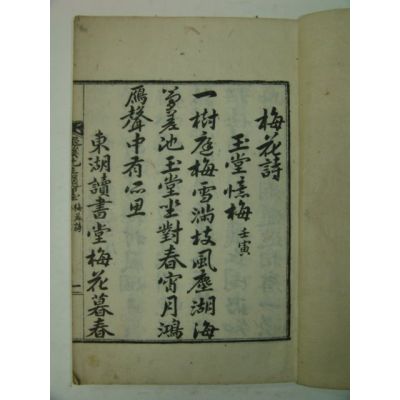 梅花詩
玉堂憶梅 壬寅
一樹庭梅雪滿枝風塵湖海
夢差池玉堂坐對春宵月鴻
鴈聲中有所思
東湖讀書堂梅花暮春
梅花詩 一